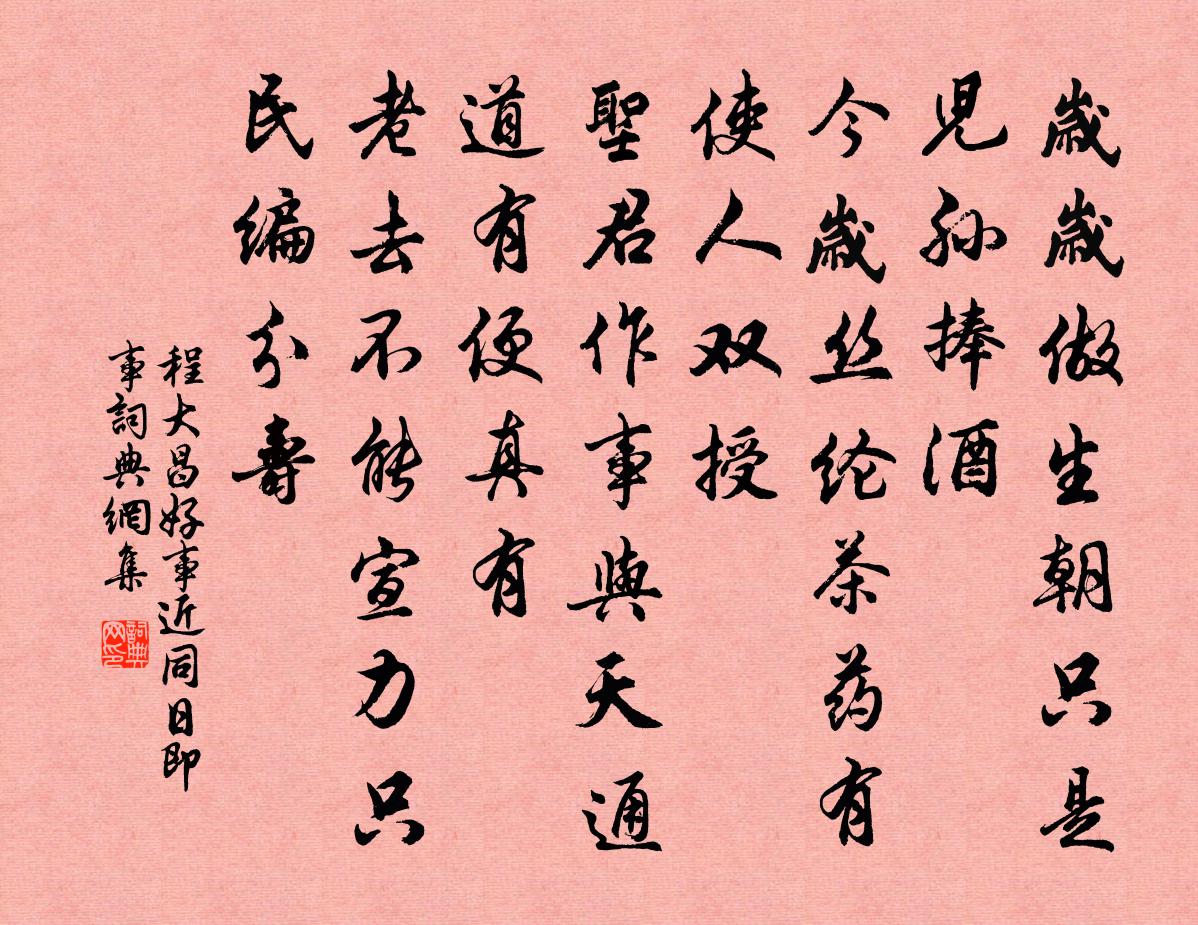 歲歲做生朝只是
児孙捧酒
今歲丝纶茶药有
使人双授
聖君作事與天通
道有便真有
老去不能宣力只
民编分壽
程大昌好事近同日即
事詞典網集
詞典网印